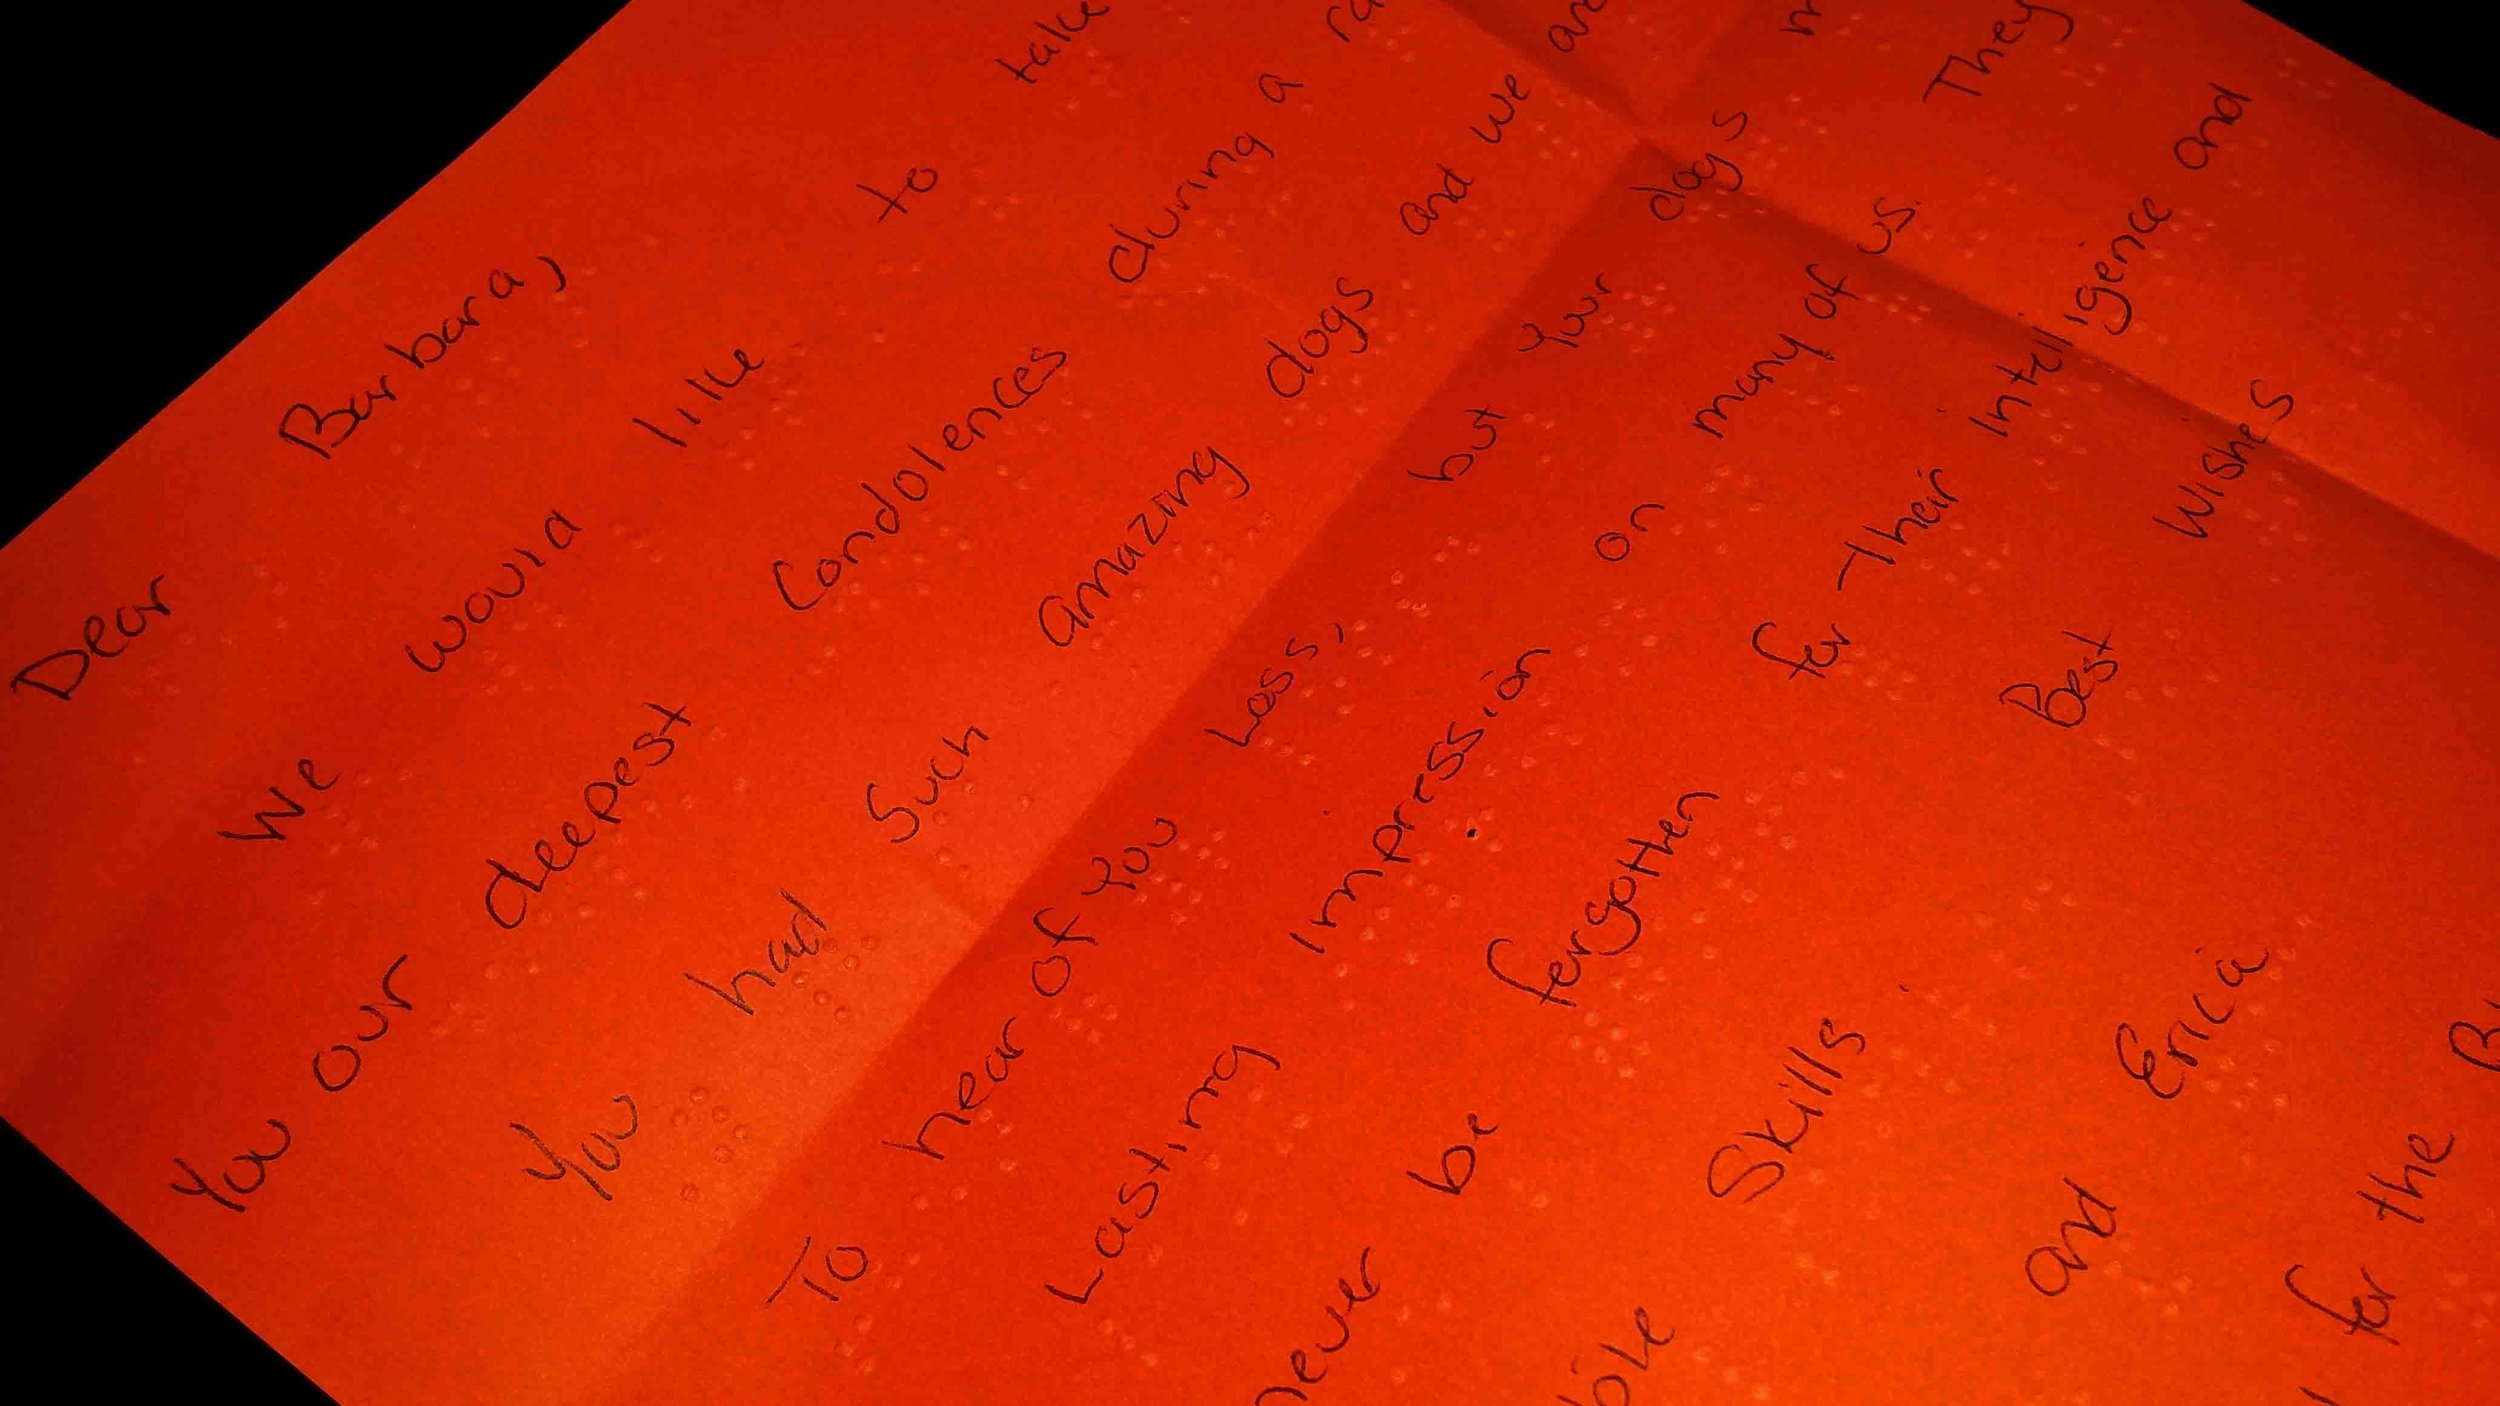 Dear Barbara,
We would like to take
You our deepest Condolences during a
You had such amazing dogs and we are
To hear of You Loss, but Your dogs
Lasting impression on many of us. They
never be forgotten for Their intelligence and
Skills. Best Wishes
and Erica
for the